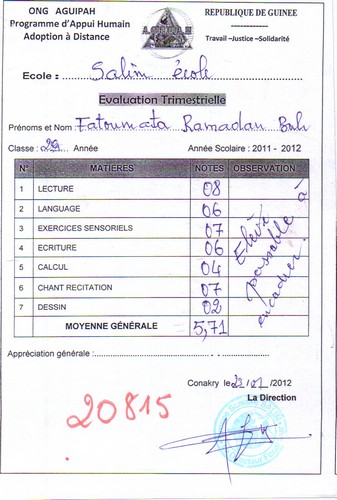 ONG AGUIPAH
Programme d'Appui Humain
Adoption à Distance
AGUIPAH
REPUBLIQUE DE GUINEE
Travail –Justice –Solidarité
Ecole : Salim école
Evaluation Trimestrielle
Prénoms et Nom Fatoumata Ramadan Bah
Classe : 2è Année
Année Scolaire : 2011 - 2012
N° MATIERES NOTES OBSERVATION
1 LECTURE 08
2 LANGUAGE 06
3 EXERCICES SENSORIELS 07
4 ECRITURE 06
5 CALCUL 04
6 CHANT RECITATION 07
7 DESSIN 02
MOYENNE GÉNÉRALE 5,71
Elève
passable à
encadrer.
Appréciation générale :
Conakry le /2012
La Direction
20815